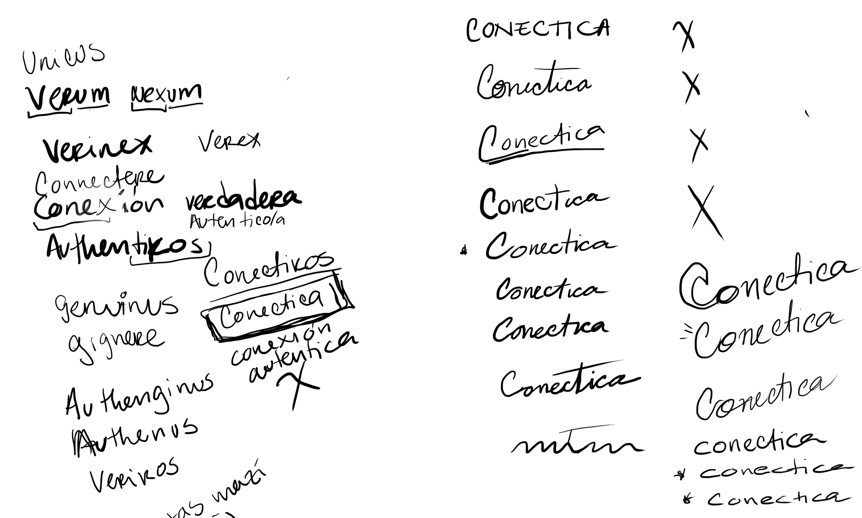 Unicus
Verum Nexum
Verinex Verex
Connectere
Conexión verdadera
Autentico/a
Authentikos
Conectikos
genuinus
Conectica
gignere
conexión
autentica
X
Authenginus
Authenus
Verikos
mazí
CONECTICA X
Conectica X
Conectica X
Conectica X
* Conectica
Conectica
Conectica
Conectica
Conectica
Conectica
Conectica
Conectica
conectica
* conectica
* conectica